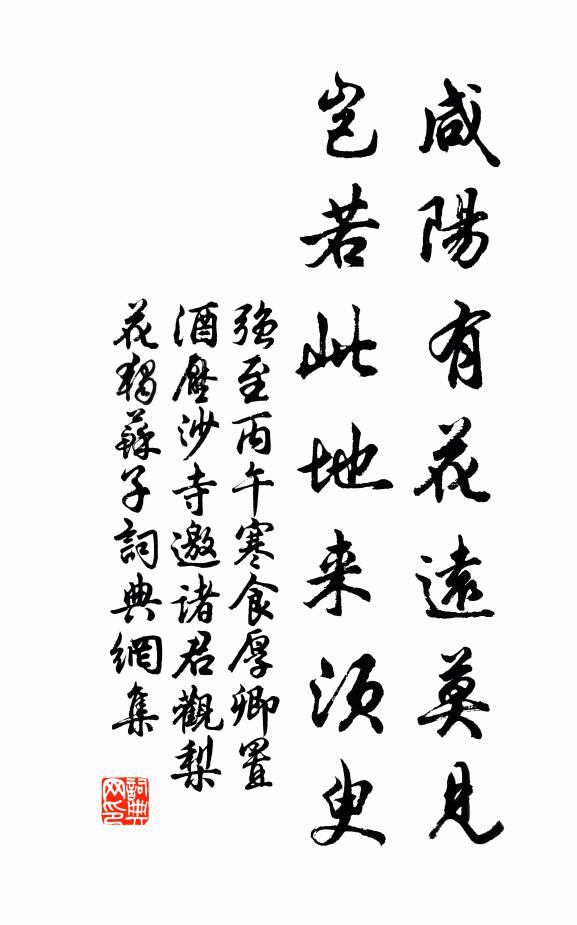 咸陽有花遠莫見
岂若此地来須臾
強至丙午寒食厚卿置
酒壓沙寺邀諸君觀梨
花獨蘇子詞典網集
詞典
网印